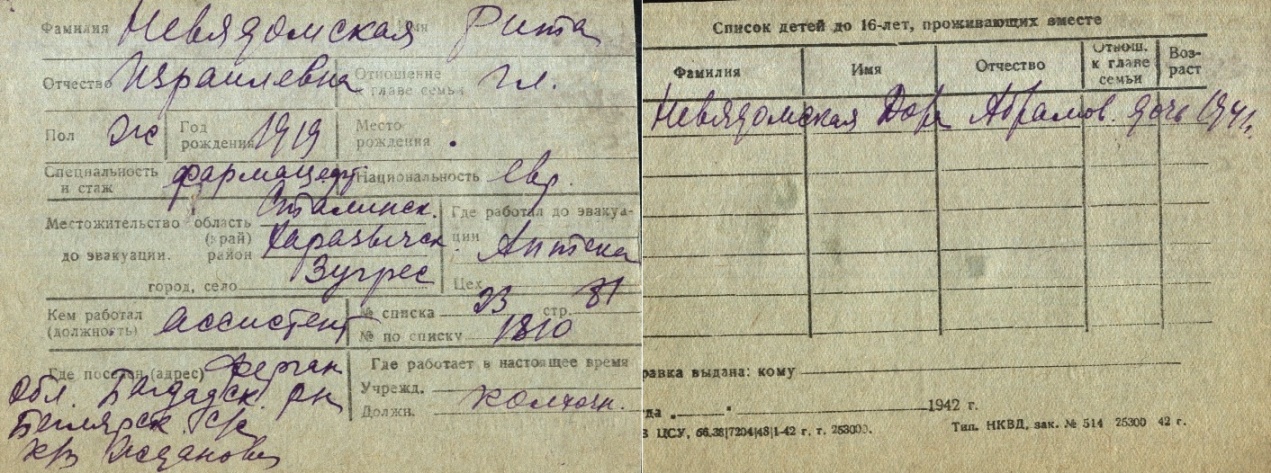 Фамилия Невядомская Имя Рита
Отчество Израилевна Отношение к главе семьи гл.
Пол ж Год рождения 1919 Место рождения
Специальность и стаж фармацевт Национальность евр.
Местожительство до эвакуации. область (край) Сталинск.
район Харцызск
город, село Зугрес
Где работал до эвакуации Аптека
Цех
Кем работал (должность) ассистент
№ списка 23 стр. 81
№ по списку 1810
Где поселен (адрес) Ферган
Обл. Багдадск. рн
с/с
к/з
Где работает в настоящее время
Учрежд.
Должн. колхозн.
Список детей до 16-лет, проживающих вместе
Фамилия Имя Отчество Отнош. к главе семьи Возраст
Невядомская Дора Абрамов. дочь 1941г.
равка выдана: кому
да " " 1942 г.
В ЦСУ, 56.38|7204|48|1-42 г. т. 253000. Тип. НКВД, зак. № 514 25300 42 г.